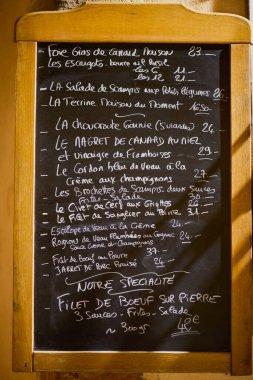 Foie Gras de Canard Maison 23.–
Les Escargots. beurre ail Persil
les 6 11.–
les 12 21.–
La Salade de Scampis aux Petits Légumes 26.–
La Terrine Maison du Moment 16.50
La choucroute Garnie (Suivant) 24
Le Magret de Canard au Miel
et vinaigre de Framboises 29.–
Le Cordon bleu de Veau à la
Crème aux champignons 27.–
Les Brochettes de Scampis deux Sauces
Frites Salade 30.–
Le Civet de Cerf aux Griottes 22.–
Le Filet de Sanglier au Poivre 31.–
Escalope de Veau à la Crème 24.–
Rognons de Veau Flambées au Cognac 24.–
Sauce Crème et champignons
Filet de Boeuf au Poivre 37.–
Jarret de Porc Braisé 24.–
Notre Spécialité
Filet de Boeuf sur Pierre
3 Sauces - Frites - Salade
~ 300gr 48.–